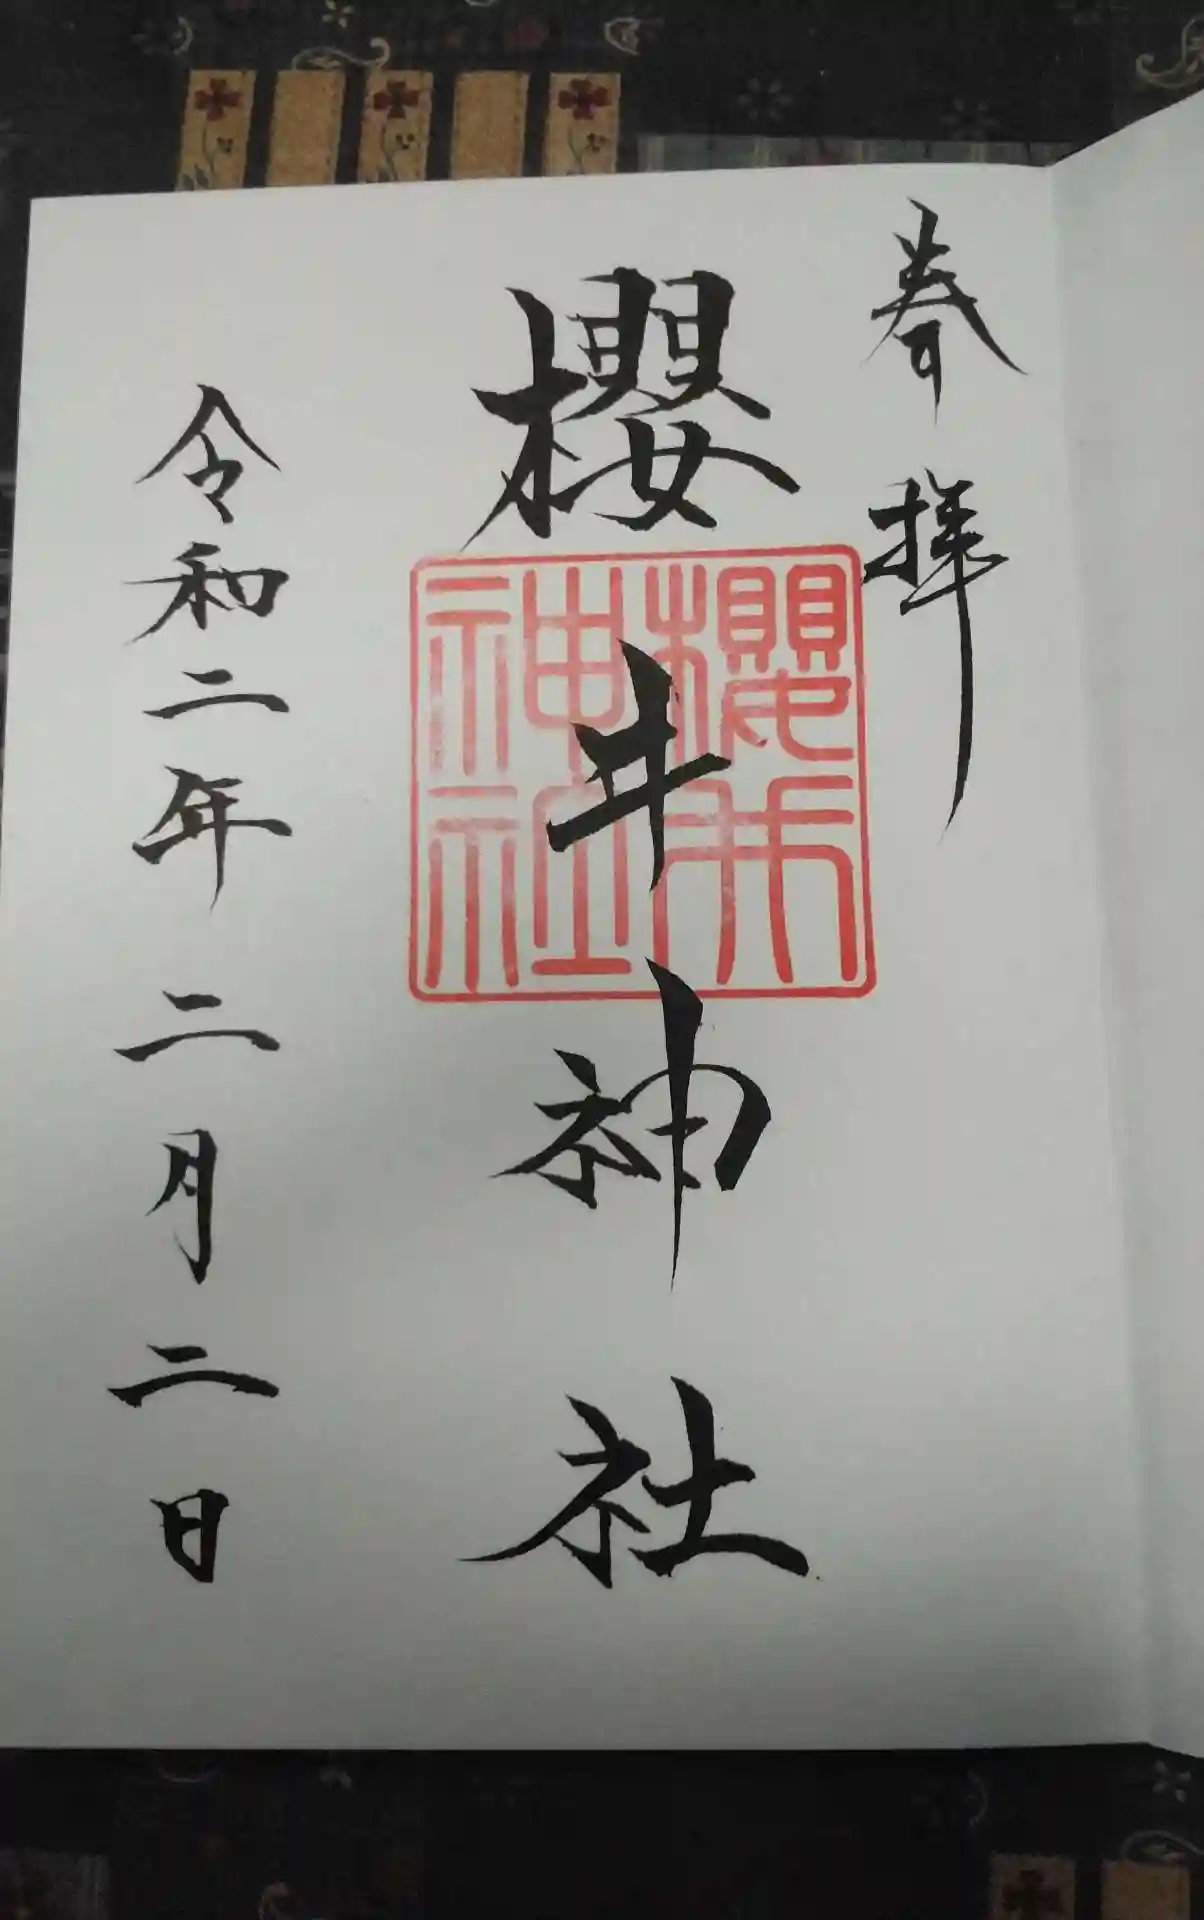 奉拝
櫻井神社
櫻井
神社
令和二年二月二日